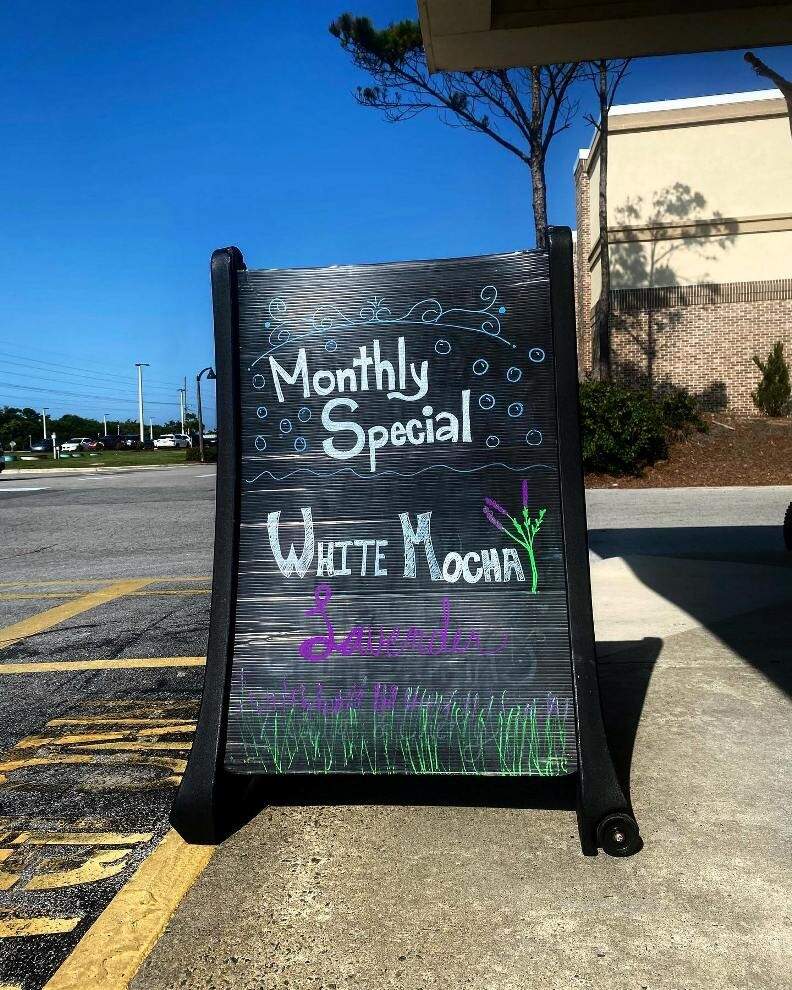 Monthly
Special
WHITE MOCHA
Lavender